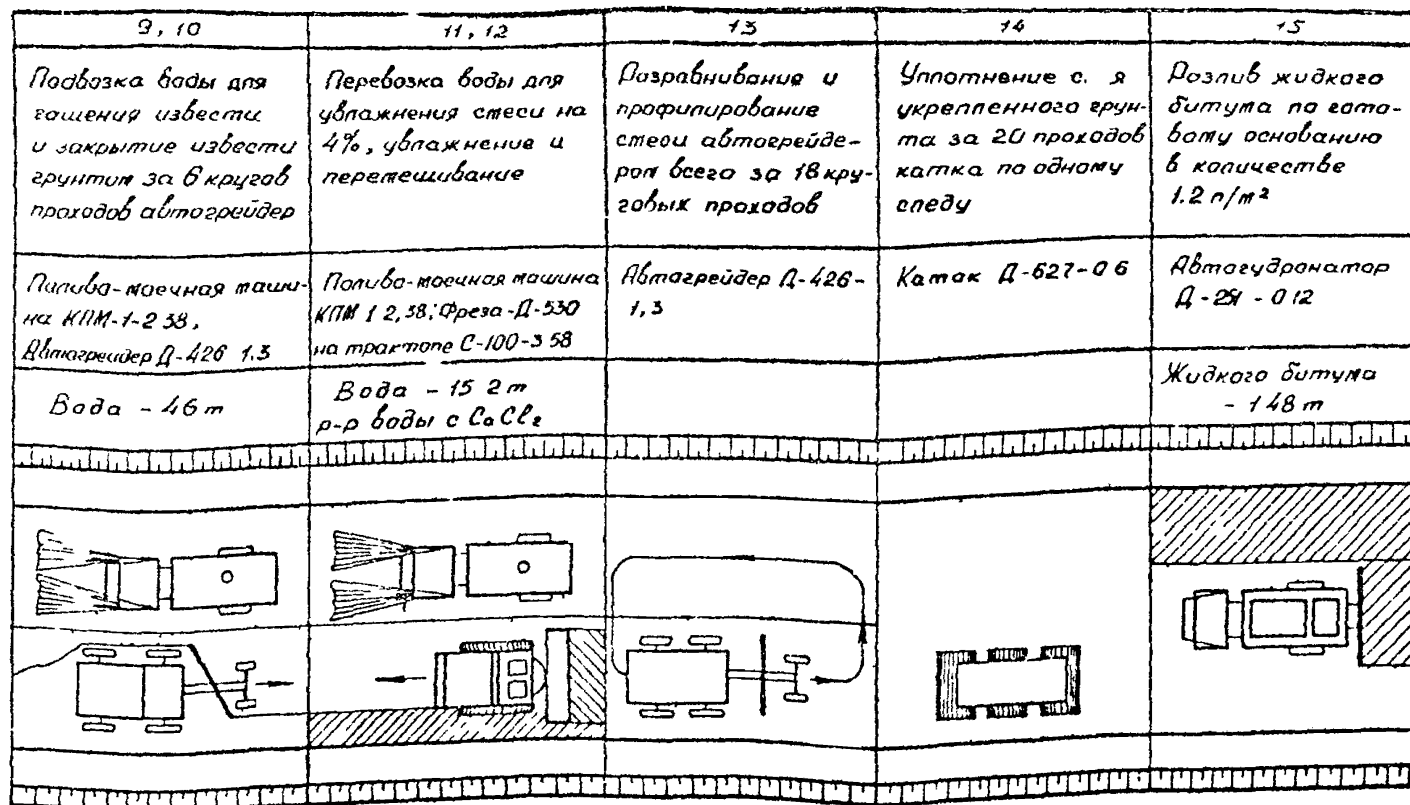 9, 10
11, 12
13
14
15
Подвозка воды для
гашения извести
и закрытие извести
грунтом за 6 кругов
проходов автогрейдер
Перевозка воды для
увлажнения смеси на
4%, увлажнение и
перемешивание
Разравнивание и
профилирование
смеси автогрейде-
ром всего за 18 кру-
говых проходов
Уплотнение с. я
укрепленного грун-
та за 20 проходов
катка по одному
следу
Розлив жидкого
битума по гото-
вому основанию
в количестве
1.2 л/м²
Поливо-моечная маши-
на КПМ-1-2 38,
Автогрейдер Д-426 1.3
Поливо-моечная машина
КПМ 1 2,38; Фреза-Д-530
на тракторе С-100-3 58
Автогрейдер Д-426-
1,3
Каток Д-627-0 6
Автогудронатор
Д-251-0 12
Вода - 46 т
Вода - 15 2 т
р-р воды с CaCl₂
Жидкого битума
- 1 48 т